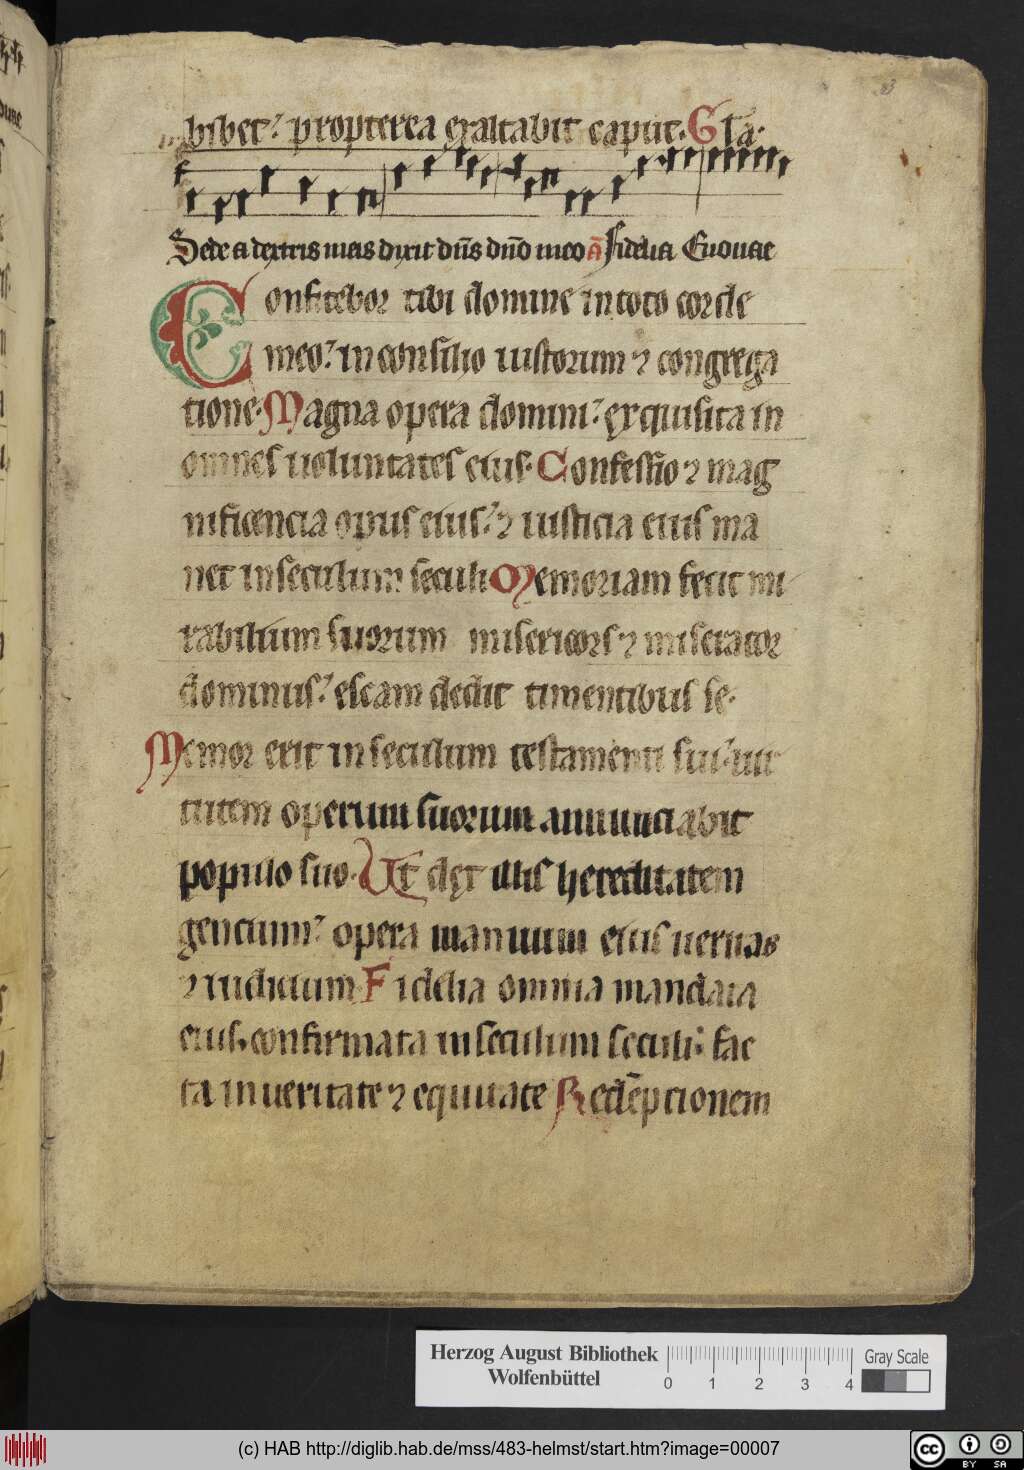 bibet: propterea exaltabit caput. Gła.
Sede a dextris meis dixit dn̄s dn̄o meo ā Fidelia Euouae
Confitebor tibi domine in toto corde
meo: in consilio iustorum ⁊ congrega
tione. Magna opera domini: exquisita in
omnes uoluntates eius. Confessio ⁊ mag
nificencia opus eius: ⁊ iusticia eius ma
net in seculum seculi Memoriam fecit mi
rabilium suorum misericors ⁊ miserator
dominus: escam dedit timentibus se.
Memor erit in seculum testamenti sui: uir
tutem operum suorum annunciabit
populo suo. Ut det illis hereditatem
gencium: opera manuum eius ueritas
⁊ iudicium Fidelia omnia mandata
eius. confirmata in seculum seculi: fac
ta in ueritate ⁊ equitate Redēpcionem
Herzog August Bibliothek
Wolfenbüttel
0 1 2 3 4
Gray Scale
(c) HAB http://diglib.hab.de/mss/483-helmst/start.htm?image=00007
cc BY SA